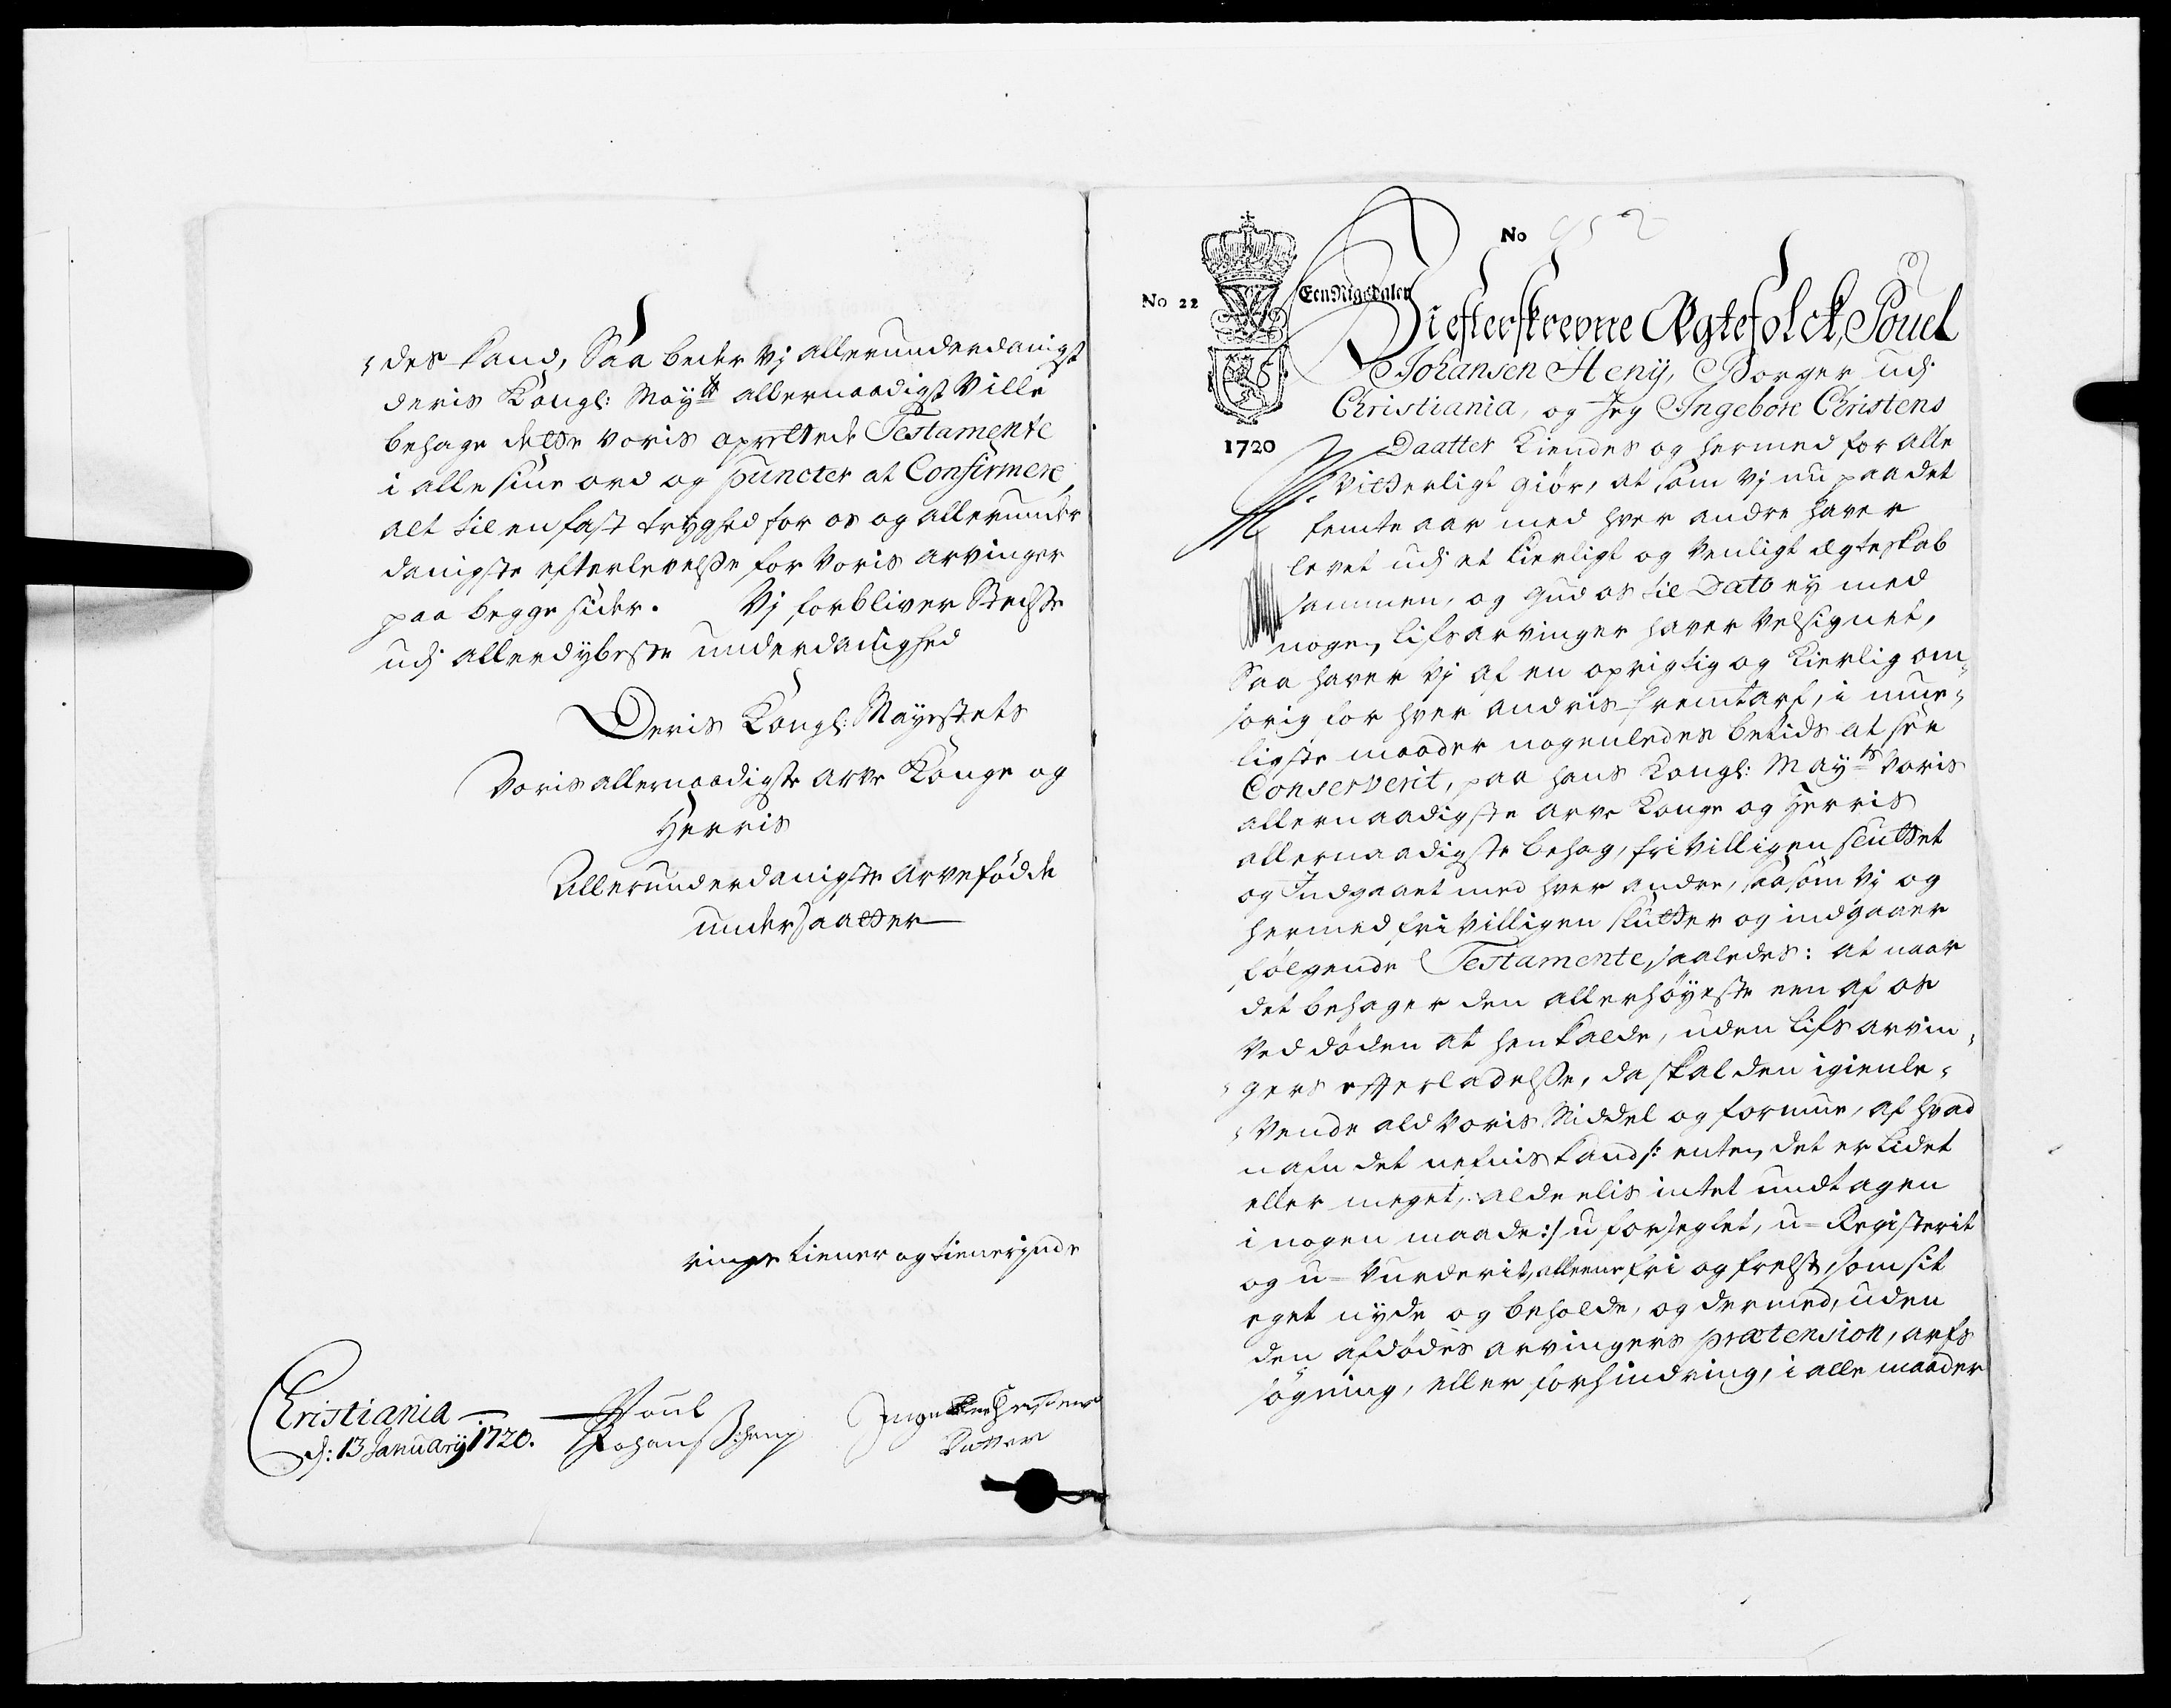 des kand, Saa beder vj allerunderdanigst
deris Kongl: Mayᵗᵗ allernaadigst Ville
behage dette voris oprettede Testamente
i alle sine ord og puncter at Confirmere,
alt til en fast tryghed for os og allerunder
danigste efterlevelsse for voris arvinger
paa begge sider. Vj forbliver Stedsse
udj allerdybeste underdanighed
Deris Kongl: Mayestets
Voris allernaadigste Arve Konge og
Herris
Allerunderdanigste Arvefødde
undersaatter
ringe tiener og tienerinde
Christiania
d: 13 January 1720.
Poul
Johanss: heny
Ingebor Christens
Datter
No 952
No 22
Een Rigsdaler
1720
Vi efterskrevne Ægtefolck, Pouel
Johansen Heny, Borger udj
Christiania, og Jeg Ingebore Christens
Daatter Kiendes og hermed for alle
Vitterligt giør, at som vj nu paa det
femte aar med hver andre haver
levet udj et kierligt og venligt ægteskab
sammen, og Gud os til Dato ey med
nogen lifsarvinger haver velsignet,
Saa haver vj af en oprigtig og kierlig om¸
sorig for hver andris fremtarf, i mue¸
ligste maader nogenledes betids at see
Conserverit, paa hans Kongl: Mayᵗˢ voris
allernaadigste Arve Konge og Herris
allernaadigste behag, frivilligen sluttet
og Indgaaet med hver andre, saasom vj og
hermed frivilligen slutter og indgaaer
følgende Testamente, saaledes: at naar
det behager den allerhøyeste een af os
Ved døden at henkalde, uden lifs arvin¸
gers efterladelsse, da skal den igienle¸
vende ald voris Middel og formue, af hvad
nafn det nefnis kand /: enten det er lidet
eller meget, aldeelis intet undtagen
i nogen maade :/ u forseglet, u= Registerit
og u= Vurderit, alleene fri og frelst, som sit
eget nyde og beholde, og dermed, uden
den afdødis arvingers prætension, arfs
søgning, eller forhindring, i alle maader